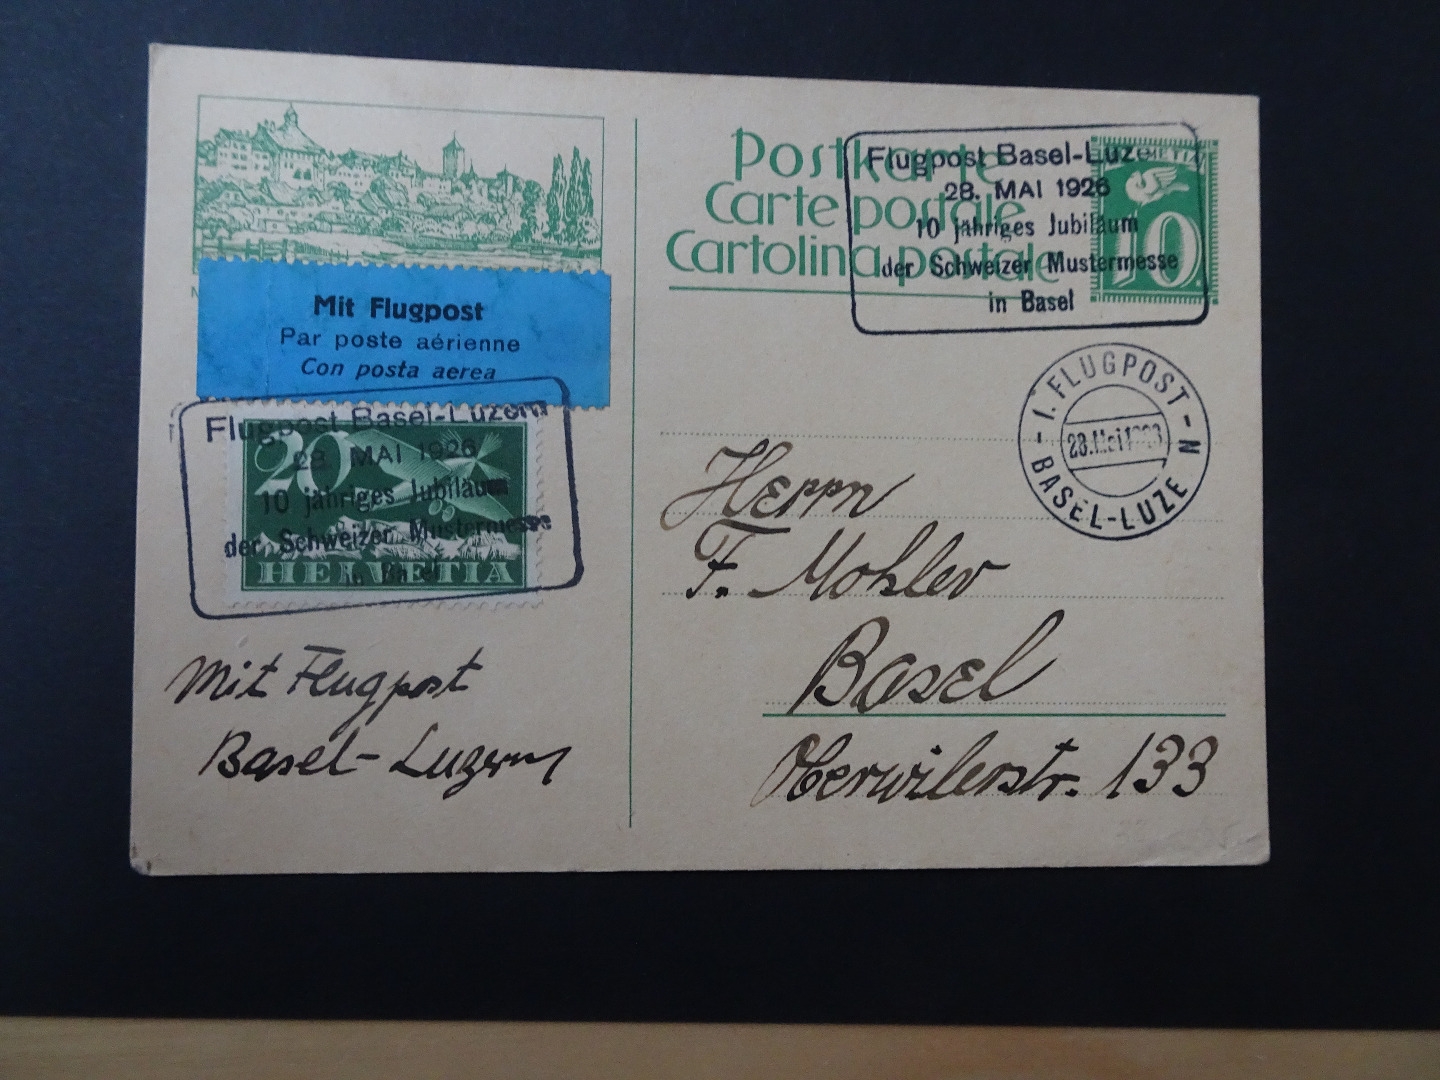 Postkarte
Carte postale
Cartolina postale
HELVETIA
10
Flugpost Basel-Luze
28. MAI 1926
10 jähriges Jubiläum
der Schweizer Mustermesse
in Basel
Mit Flugpost
Par poste aérienne
Con posta aerea
20
HELVETIA
Flugpost Basel-Luzern
28. MAI 1926
10 jähriges Jubiläum
der Schweizer Mustermesse
in Basel
I. FLUGPOST
BASEL-LUZE N
Herrn
F. Mohler
Basel
Oberwilerstr. 133
Mit Flugpost
Basel-Luzern